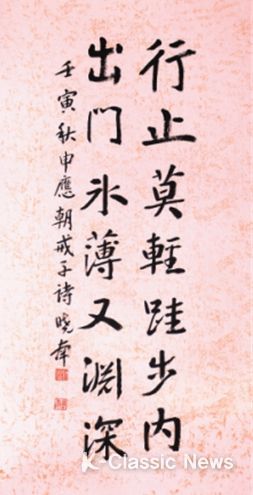 行止莫輊跬步內
出門氷薄又淵深
壬寅秋申應朝戒子诗晓奉
K-Classic News